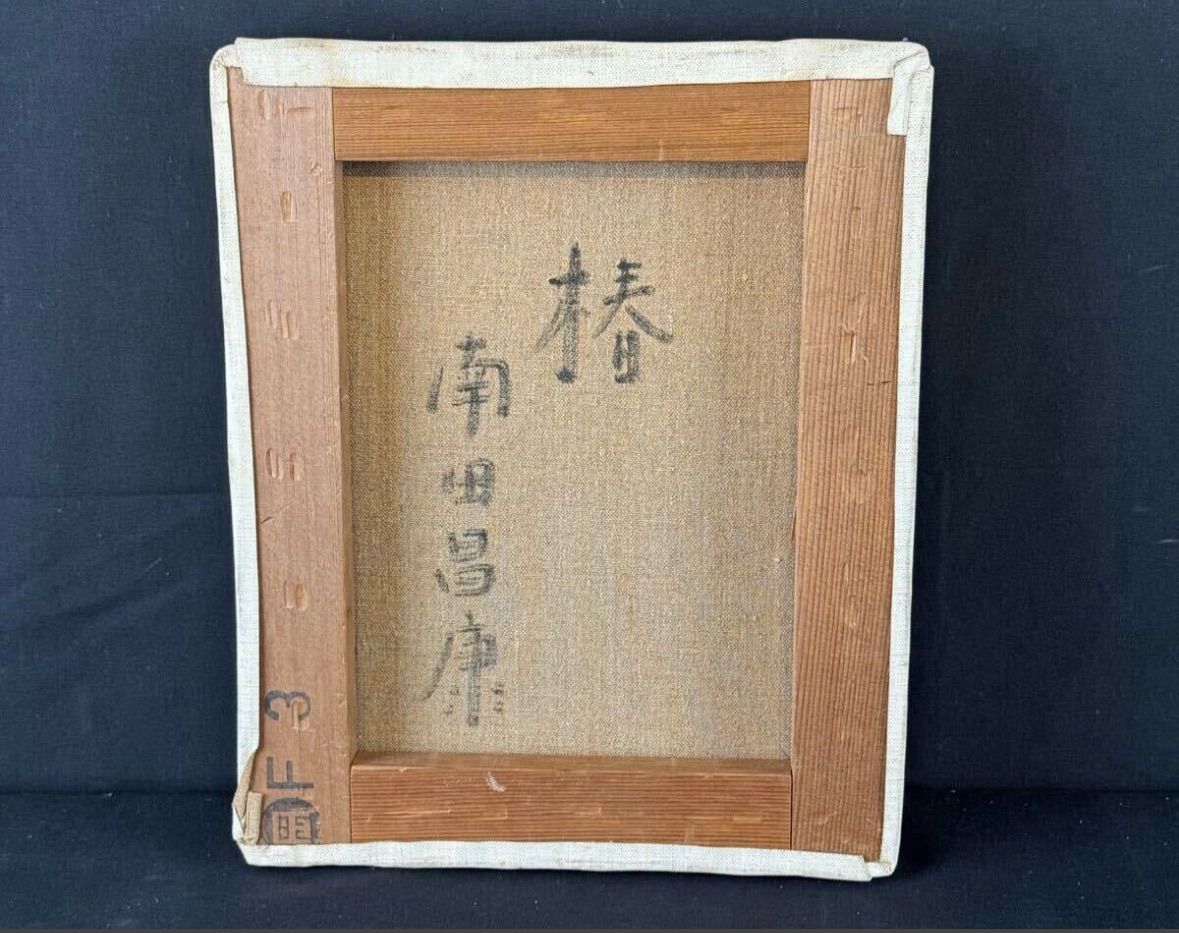 椿
南田昌康
F 3